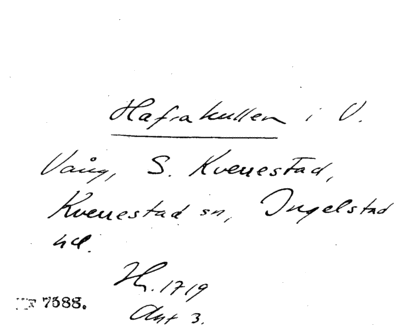 Hafrakullen i V.
Vång, S. Kvenestad,
Kvenestad sn, Ingelstad
hd.
H. 1719
Akt 3.
7588.